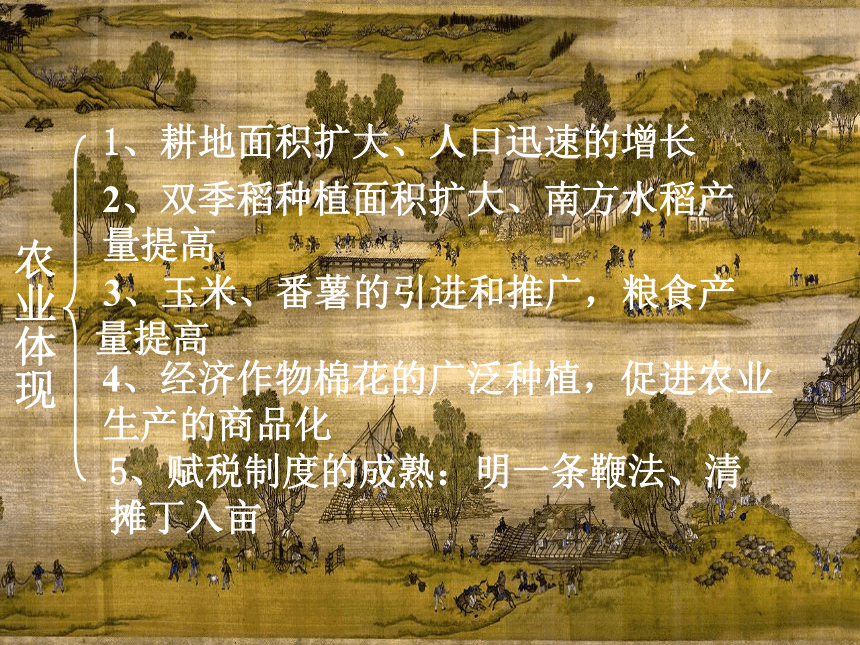 农业体现
1、耕地面积扩大、人口迅速的增长
2、双季稻种植面积扩大、南方水稻产
量提高
3、玉米、番薯的引进和推广，粮食产
量提高
4、经济作物棉花的广泛种植，促进农业
生产的商品化
5、赋税制度的成熟：明一条鞭法、清
摊丁入亩